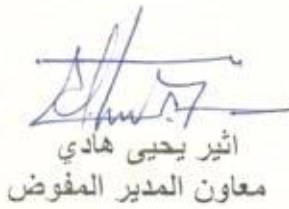 اثير يحيى هادي
معاون المدير المفوض